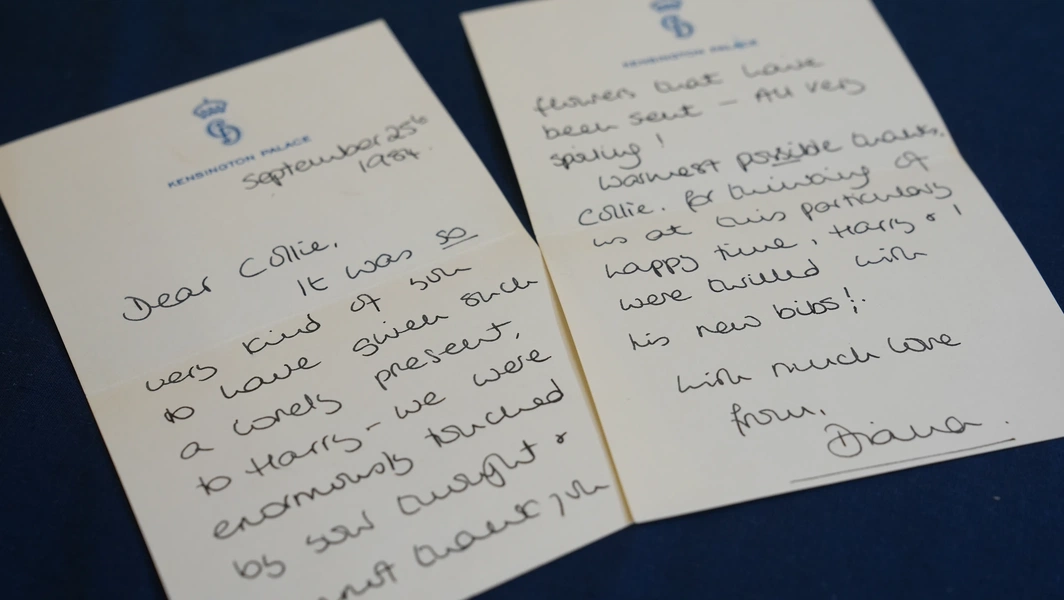 KENSINGTON PALACE
September 25th
1984.
Dear Collie,
It was so
very kind of you
to have given such
a lovely present,
to Harry - we were
enormously touched
by your thought &
must thank you
KENSINGTON PALACE
flowers that have
been sent - All very
spoiling!
Warmest possible thanks,
Collie, for thinking of
us at this particularly
happy time, Harry & I
were thrilled with
his new bibs!.
With much love
from,
Diana.